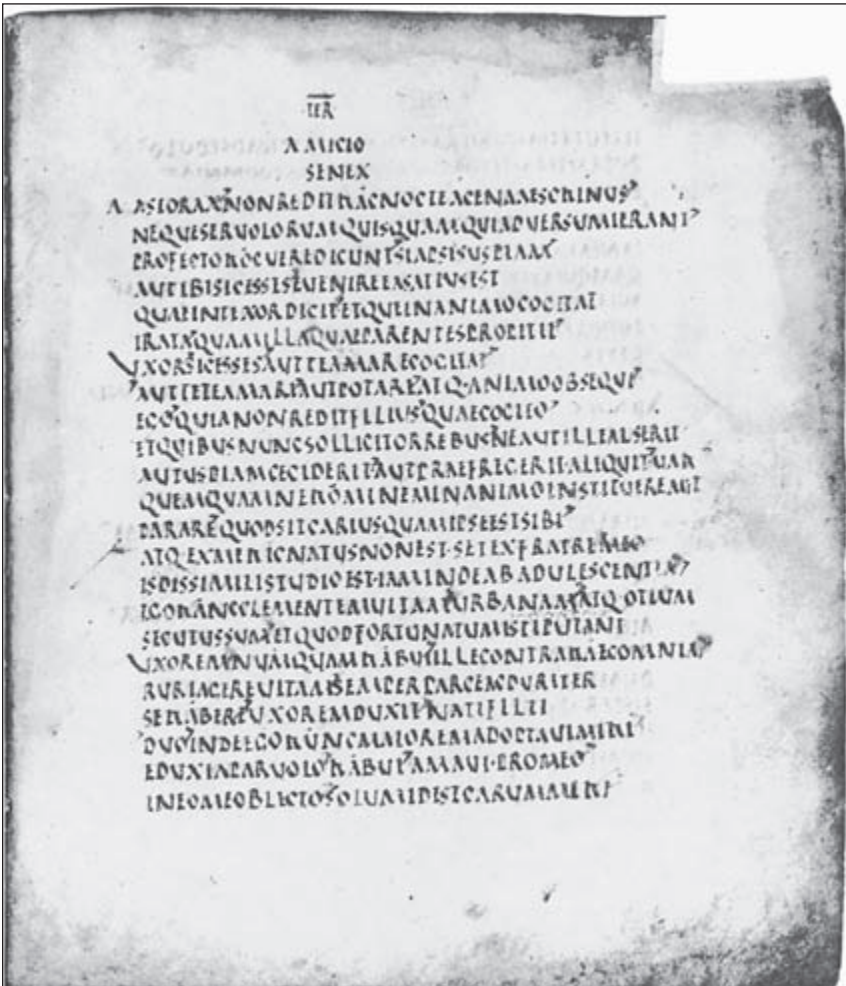 TER
A MICIO
SENEX
A STORAXNONREDITHACNOCTEACENAAESCHINUS
NEQUESERUOLORUMQUISQUAMQUIADUERSUMIERANT
PROFECTOHOCUEREDICUNTSIABSISUSPIAM
AUTIBISICESSESEUENIREEASATIUSEST
QUAEINTEUXORDICITETQUEINANIMOCOGITAT
IRATAQUAMILLAQUAEPARENTESPROPITII
UXORSICESSESAUTTEAMARECOGITAT
AUTTETEAMARIAUTPOTAREATQ·ANIMOOBSEQUI
EGOQUIANONREDITFILIUSQUAECOGITO
ETQUIBUSNUNCSOLLICITORREBUSNEAUTILLEALSERIT
AUTUSPIAMCECIDERITAUTPRAEFREGERITALIQUITUAH
QUEMQUAMNEHOMINEMINANIMOINSTITUEREAUT
PARAREQUODSITCARIUSQUAMIPSEESTSIBI
ATQ·EXMEHICNATUSNONEST·SETEXFRATREMEO
ISDISSIMILISTUDIOEST·IAMINDEABADULESCENTIA
EGOHANCCLEMENTEMUITAMURBANAMATQOTIUM
SECUTUSSUMETQUODFORTUNATUMISTIPUTANT
UXOREMNUMQUAMHABUIILLECONTRAHAECOMNIA
RURIAGEREUITAMSEMPERPARCEACDURITER
SEHABEREUXOREMDUXITNATIFILII
DUOINDEEGOHUNCMAIOREMADOPTAUIMIHI
EDUXIAPARUOLOHABUIAMAUI·PROMEO
INEOMEOBLECTOSOLUMIDESTCARUMMIHI